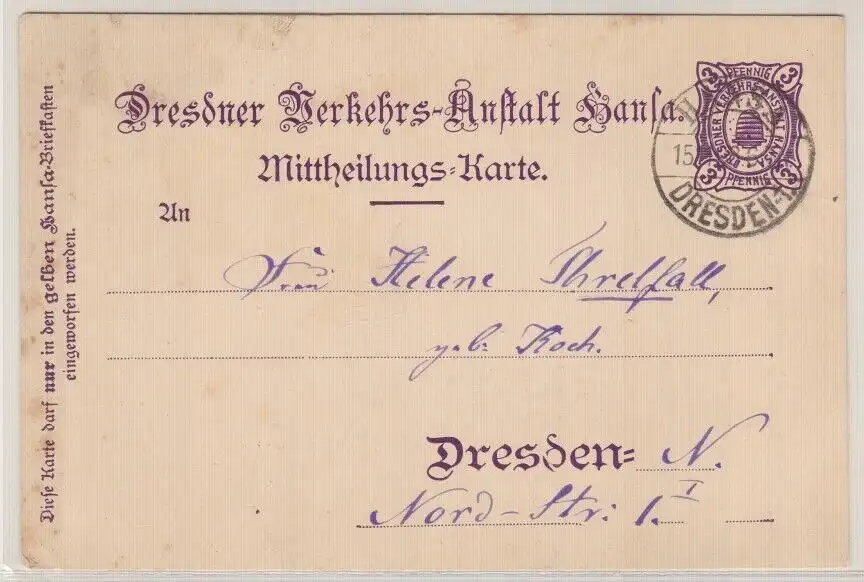 Dresdner Verkehrs-Anstalt Hansa.
Mittheilungs-Karte.
An
Frau Helene Threlfall,
geb. Koch.
Dresden- N.
Nord-Str: 1. I
Diese Karte darf nur in den gelben Hansa-Briefkasten
eingeworfen werden.
3 PFENNIG 3
DRESDNER VERKEHRS-ANSTALT HANSA
3 PFENNIG 3
15
DRESDEN-